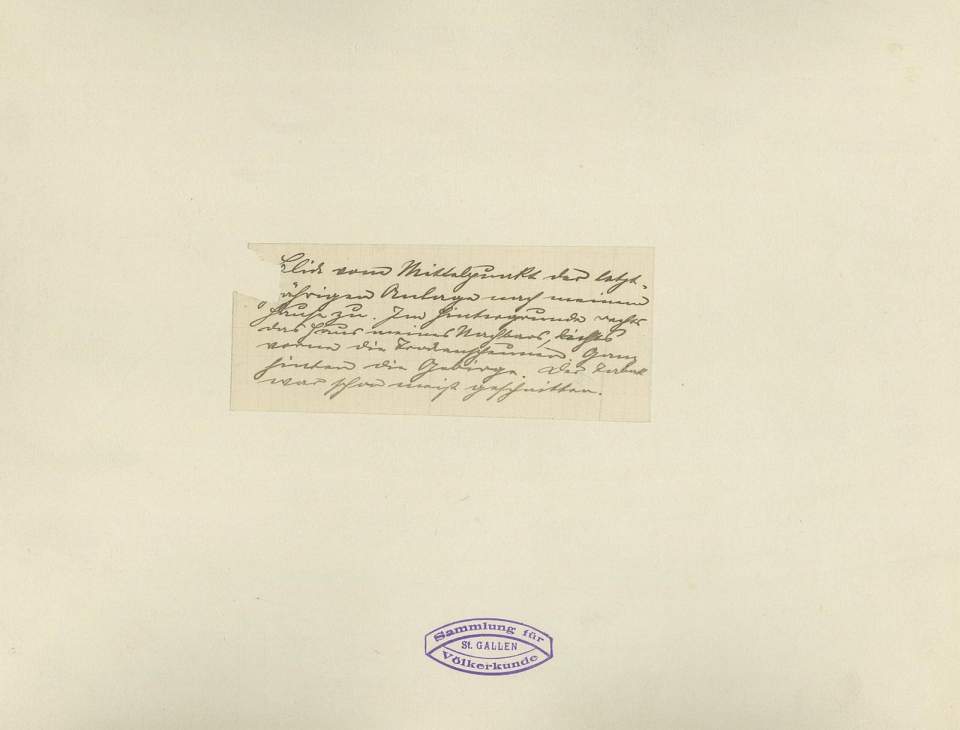 Blick vom Mittelpunkt der letzt-
jährigen Anlage nach meinem
Hause zu. Im Hintergrunde rechts
das Haus meines Nachbars, rechts
vorne die Trockenscheunen. Ganz
hinten die Gebirge. Der Tabak
war schon meist geschnitten.
Sammlung für
St. GALLEN
Völkerkunde